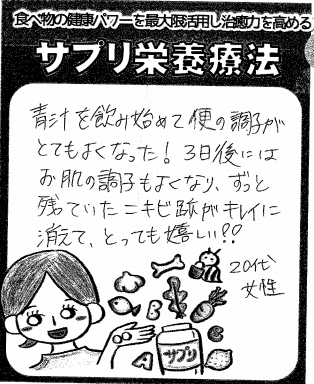 食べ物の健康パワーを最大限活用し治癒力を高める
サプリ栄養療法
青汁を飲み始めて便の調子が
とてもよくなった！3日後には
お肌の調子もよくなり、ずっと
残っていたニキビ跡がキレイに
消えて、とっても嬉しい！！
20代
女性
B
C
A
サプリ